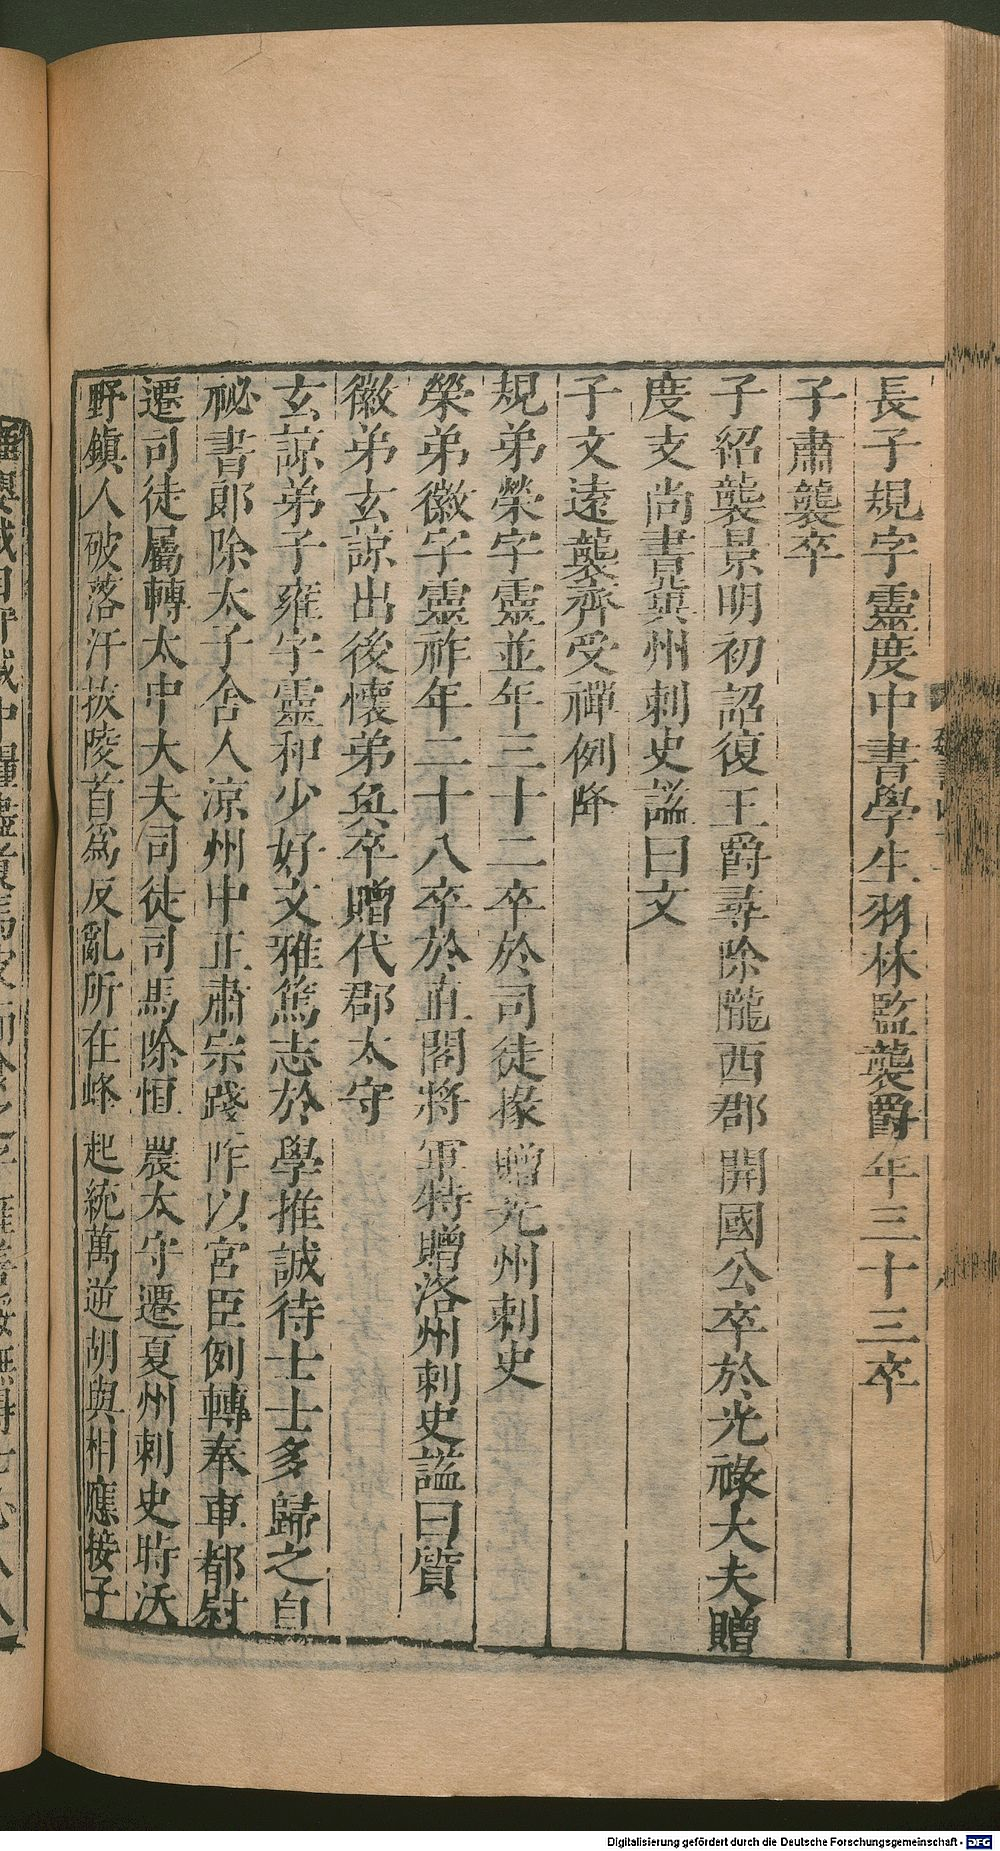 長子規字靈度中書學生羽林監襲爵年三十三卒
子肅襲卒
子紹襲景明初詔復王爵尋除隴西郡開國公卒於光祿大夫贈
度支尚書兾州刺史謚曰文
子文遠襲齊受禪例降
規弟榮字靈並年三十二卒於司徒掾贈光州刺史
榮弟徽字靈祚年二十八卒於直閣將軍特贈洛州刺史謚曰質
徽弟玄諒出後懷弟奐卒贈代郡太守
玄諒弟子雍字靈和少好文雅篤志於學推誠待士士多歸之自
祕書郎除太子舍人涼州中正肅宗踐阼以宮臣例轉奉車都尉
遷司徒屬轉太中大夫司徒司馬除恒農太守遷夏州刺史時沃
野鎮人破落汗拔陵首爲反亂所在蜂起統萬逆胡與相應接子
Digitalisierung gefördert durch die Deutsche Forschungsgemeinschaft - DFG